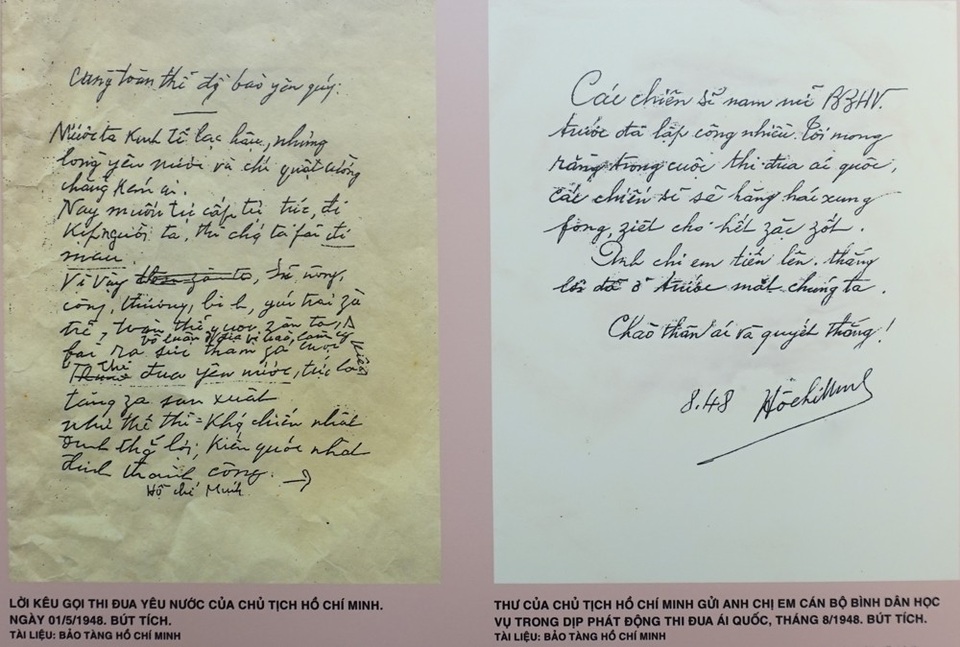 Cùng toàn thể đ/b bào yêu quý:
Nước ta kinh tế lạc hậu, nhưng
lòng yêu nước và chí quật cường
chẳng kém ai.
Nay muốn tự cấp tự túc, đi
kịp người ta, thì chúng ta fải đi
mau.
Vì vậy, sĩ, nông,
công, thương, binh, gái trai zà
trẻ, toàn thể quốc zân ta,
vô luận ở địa vị nào, làm
fải ra sức tham za cuộc
Thi đua yêu nước, tức là
tăng za sản xuất
như thế thì = Kháng chiến nhất
định thắng lợi, Kiến quốc nhất
định thành công.
Hồ Chí Minh
LỜI KÊU GỌI THI ĐUA YÊU NƯỚC CỦA CHỦ TỊCH HỒ CHÍ MINH.
NGÀY 01/5/1948. BÚT TÍCH.
TÀI LIỆU: BẢO TÀNG HỒ CHÍ MINH
Các chiến sĩ nam nữ BZHV.
trước đã lập công nhiều. Tôi mong
rằng trong cuộc thi đua ái quốc,
các chiến sĩ sẽ hăng hái xung
fong, ziệt cho hết zặc zốt.
Anh chị em tiến lên. thắng
lợi đã ở trước mắt chúng ta.
Chào thân ái và quyết thắng!
8.48 HồchíMinh
THƯ CỦA CHỦ TỊCH HỒ CHÍ MINH GỬI ANH CHỊ EM CÁN BỘ BÌNH DÂN HỌC
VỤ TRONG DỊP PHÁT ĐỘNG THI ĐUA ÁI QUỐC, THÁNG 8/1948. BÚT TÍCH.
TÀI LIỆU: BẢO TÀNG HỒ CHÍ MINH